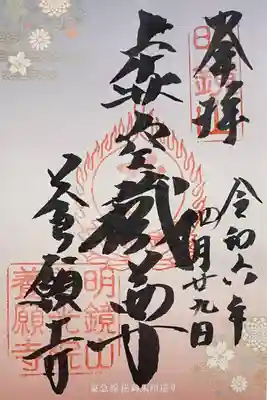 奉拝
令和六年
四月廿九日
虚空蔵尊
養願寺
明鏡山
養願寺